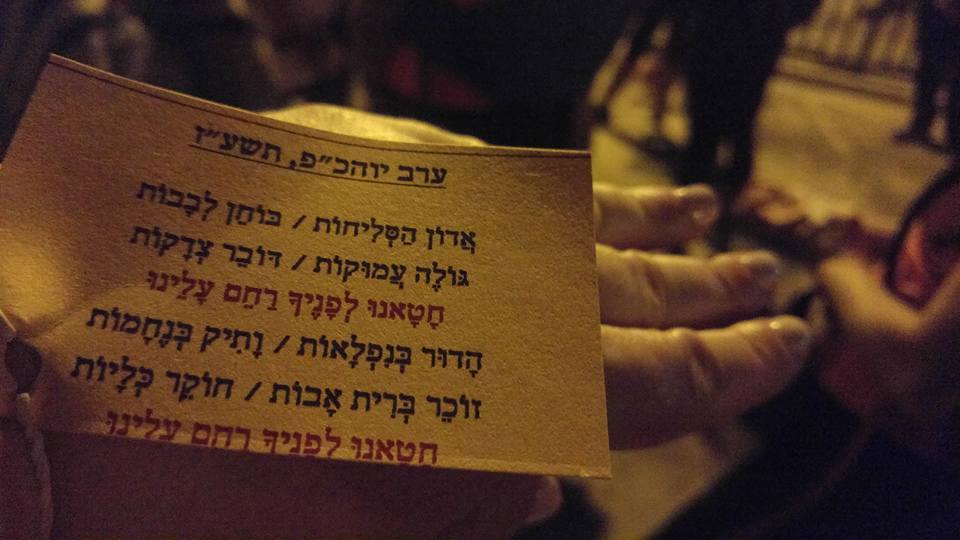 ערב יוהכ״פ, תשע״ז
אֲדוֹן הַסְּלִיחוֹת / בּוֹחֵן לְבָבוֹת
גּוֹלֶה עֲמוּקוֹת / דּוֹבֵר צְדָקוֹת
חָטָאנוּ לְפָנֶיךָ רַחֵם עָלֵינוּ
הָדוּר בְּנִפְלָאוֹת / וָתִיק בְּנֶחָמוֹת
זוֹכֵר בְּרִית אָבוֹת / חוֹקֵר כְּלָיוֹת
חָטָאנוּ לְפָנֶיךָ רַחֵם עָלֵינוּ